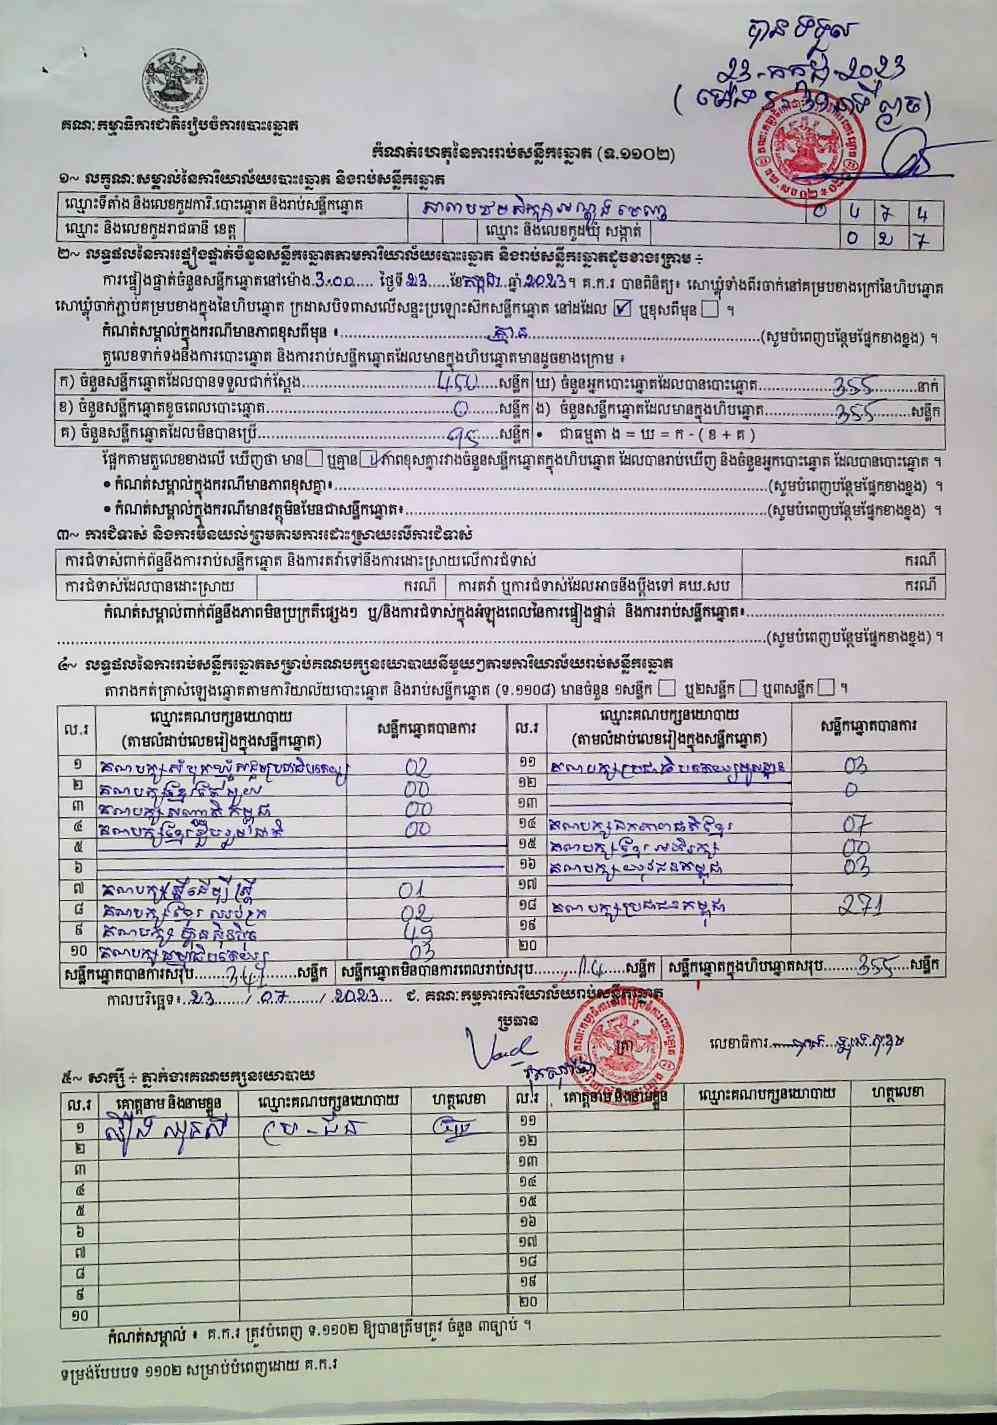 បានទទួល
23-កក្កដា-2023
គណៈកម្មាធិការជាតិរៀបចំការបោះឆ្នោត
កំណត់ហេតុនៃការរាប់សន្លឹកឆ្នោត (ទ.១១០២)
១~ លក្ខណៈសម្គាល់នៃការិយាល័យបោះឆ្នោត និងរាប់សន្លឹកឆ្នោត
ឈ្មោះទីតាំង និងលេខកូដការិ.បោះឆ្នោត និងរាប់សន្លឹកឆ្នោត 0 4 7 4
ឈ្មោះ និងលេខកូដរាជធានី ខេត្ត ឈ្មោះ និងលេខកូដឃុំ សង្កាត់ 0 2 7
២~ លទ្ធផលនៃការផ្ទៀងផ្ទាត់ចំនួនសន្លឹកឆ្នោតតាមការិយាល័យបោះឆ្នោត និងរាប់សន្លឹកឆ្នោតដូចខាងក្រោម ÷
ការផ្ទៀងផ្ទាត់ចំនួនសន្លឹកឆ្នោតនៅម៉ោង.3:00.... ថ្ងៃទី23.....ខែកក្កដា.. ឆ្នាំ.2023។ គ.ក.រ បានពិនិត្យ៖ សោឃ្លុំទាំងពីរចាក់នៅគម្របខាងក្រៅនៃហិបឆ្នោត
សោឃ្លុំចាក់ភ្ជាប់គម្របខាងក្នុងនៃហិបឆ្នោត ក្រដាសបិទពាសលើសន្ទះប្រឡោះស៊កសន្លឹកឆ្នោត នៅដដែល ☑ ឬខុសពីមុន ☐ ។
កំណត់សម្គាល់ក្នុងករណីមានភាពខុសពីមុន ៖............គ្មាន............(សូមបំពេញបន្ថែមផ្នែកខាងខ្នង) ។
តួលេខទាក់ទងនឹងការបោះឆ្នោត និងការរាប់សន្លឹកឆ្នោតដែលមានក្នុងហិបឆ្នោតមានដូចខាងក្រោម ៖
ក) ចំនួនសន្លឹកឆ្នោតដែលបានទទួលជាក់ស្តែង............450......សន្លឹក ឃ) ចំនួនអ្នកបោះឆ្នោតដែលបានបោះឆ្នោត............355..........នាក់
ខ) ចំនួនសន្លឹកឆ្នោតខូចពេលបោះឆ្នោត............0......សន្លឹក ង) ចំនួនសន្លឹកឆ្នោតដែលមានក្នុងហិបឆ្នោត............355........សន្លឹក
គ) ចំនួនសន្លឹកឆ្នោតដែលមិនបានប្រើ............95......សន្លឹក • ជាធម្មតា ង = ឃ = ក - ( ខ + គ )
ផ្អែកតាមតួលេខខាងលើ ឃើញថា មាន ☐ ឬគ្មាន ☑ ភាពខុសគ្នារវាងចំនួនសន្លឹកឆ្នោតក្នុងហិបឆ្នោត ដែលបានរាប់ឃើញ និងចំនួនអ្នកបោះឆ្នោត ដែលបានបោះឆ្នោត ។
• កំណត់សម្គាល់ក្នុងករណីមានភាពខុសគ្នា៖............(សូមបំពេញបន្ថែមផ្នែកខាងខ្នង) ។
• កំណត់សម្គាល់ក្នុងករណីមានវត្ថុមិនមែនជាសន្លឹកឆ្នោត៖............(សូមបំពេញបន្ថែមផ្នែកខាងខ្នង) ។
៣~ ការជំទាស់ និងការមិនយល់ព្រមតាមការដោះស្រាយលើការជំទាស់
ការជំទាស់ពាក់ព័ន្ធនឹងការរាប់សន្លឹកឆ្នោត និងការតវ៉ាទៅនឹងការដោះស្រាយលើការជំទាស់ ករណី
ការជំទាស់ដែលបានដោះស្រាយ ករណី ការតវ៉ា ឬការជំទាស់ដែលអាចនឹងប្តឹងទៅ គឃ.សប ករណី
កំណត់សម្គាល់ពាក់ព័ន្ធនឹងភាពមិនប្រក្រតីផ្សេងៗ ឬ/និងការជំទាស់ក្នុងអំឡុងពេលនៃការផ្ទៀងផ្ទាត់ និងការរាប់សន្លឹកឆ្នោត៖............
............(សូមបំពេញបន្ថែមផ្នែកខាងខ្នង) ។
៤~ លទ្ធផលនៃការរាប់សន្លឹកឆ្នោតសម្រាប់គណបក្សនយោបាយនីមួយៗតាមការិយាល័យរាប់សន្លឹកឆ្នោត
តារាងកត់ត្រាសំឡេងឆ្នោតតាមការិយាល័យបោះឆ្នោត និងរាប់សន្លឹកឆ្នោត (ទ.១១០៨) មានចំនួន ១សន្លឹក ☐ ឬ២សន្លឹក ☐ ឬ៣សន្លឹក ☐ ។
ល.រ ឈ្មោះគណបក្សនយោបាយ (តាមលំដាប់លេខរៀងក្នុងសន្លឹកឆ្នោត) សន្លឹកឆ្នោតបានការ ល.រ ឈ្មោះគណបក្សនយោបាយ (តាមលំដាប់លេខរៀងក្នុងសន្លឹកឆ្នោត) សន្លឹកឆ្នោតបានការ
១ គណបក្សសំបុកឃ្មុំសង្គមប្រជាធិបតេយ្យ 02 ១១ គណបក្សប្រជាធិបតេយ្យមូលដ្ឋាន 03
២ គណបក្សខ្មែរតែមួយ 00 ១២ 0
៣ គណបក្សសញ្ជាតិកម្ពុជា 00 ១៣
៤ គណបក្សខ្មែររួបរួមជាតិ 00 ១៤ គណបក្សឯកភាពជាតិខ្មែរ 07
៥ ១៥ គណបក្សខ្មែរអភិរក្ស 00
៦ ១៦ គណបក្សយុវជនកម្ពុជា 03
៧ គណបក្សស្ត្រីដើម្បីស្ត្រី 01 ១៧
៨ គណបក្សខ្មែរឈប់ក្រ 02 ១៨ គណបក្សប្រជាជនកម្ពុជា 271
៩ គណបក្សហ៊្វុនស៊ិនប៉ិច 49 ១៩
១០ គណបក្សធម្មាធិបតេយ្យ 03 ២០
សន្លឹកឆ្នោតបានការសរុប......341......សន្លឹក សន្លឹកឆ្នោតមិនបានការពេលរាប់សរុប......14......សន្លឹក សន្លឹកឆ្នោតក្នុងហិបឆ្នោតសរុប......355......សន្លឹក
កាលបរិច្ឆេទ៖..23....../.07....../..2023.... ជ. គណៈកម្មការការិយាល័យរាប់សន្លឹកឆ្នោត
ប្រធាន
ត្រា
លេខាធិការ
៥~ សាក្សី ÷ ភ្នាក់ងារគណបក្សនយោបាយ
ល.រ គោត្តនាម និងនាមខ្លួន ឈ្មោះគណបក្សនយោបាយ ហត្ថលេខា ល.រ គោត្តនាម និងនាមខ្លួន ឈ្មោះគណបក្សនយោបាយ ហត្ថលេខា
១ ១១
២ ១២
៣ ១៣
៤ ១៤
៥ ១៥
៦ ១៦
៧ ១៧
៨ ១៨
៩ ១៩
១០ ២០
កំណត់សម្គាល់ ៖ គ.ក.រ ត្រូវបំពេញ ទ.១១០២ ឱ្យបានត្រឹមត្រូវ ចំនួន ៣ច្បាប់ ។
ទម្រង់បែបបទ ១១០២ សម្រាប់បំពេញដោយ គ.ក.រ